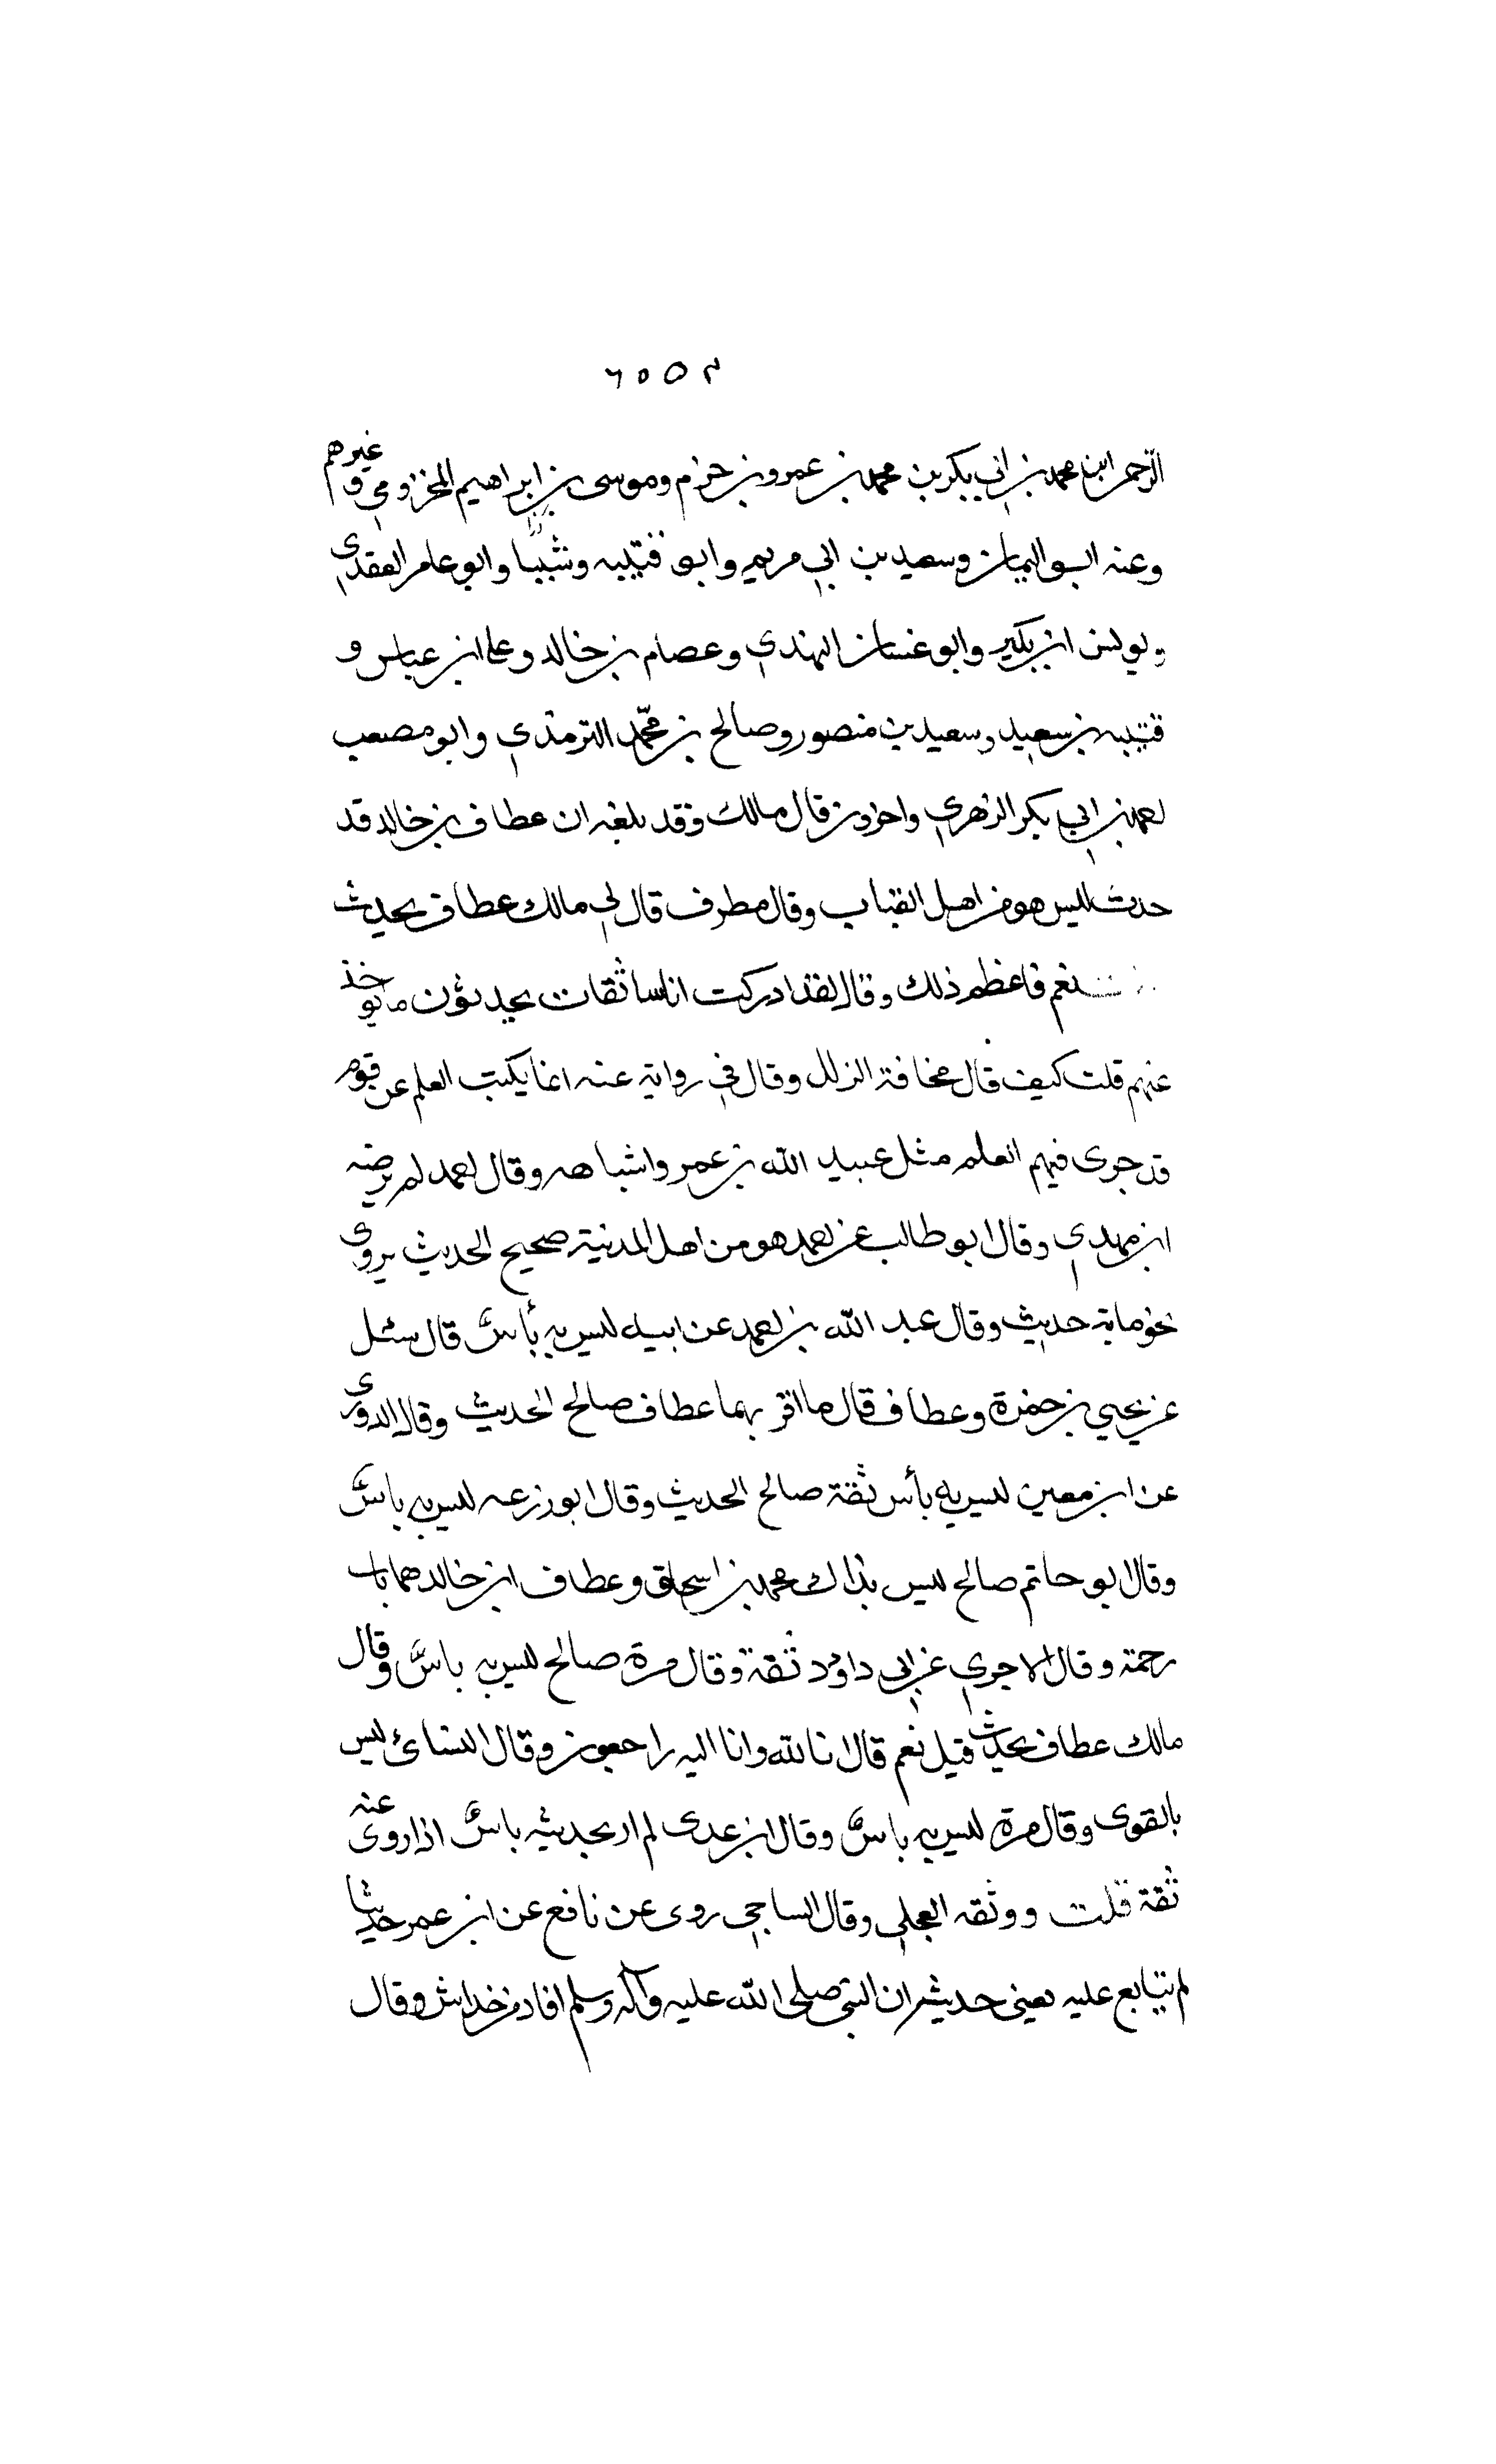 الرحمن ابن محمد بن ابي بكر بن محمد بن عمرو بن حزم وموسى بن ابراهيم المخزومي وغيرهم
وعنه ابو اليمان وسعيد بن ابي مريم وابو قتيبه وشبابا وابو عامر العقدي
و يونس ابن بكير وابو غسان النهدي وعصام بن خالد وعلى ابن عباس و
قتيبه بن سعيد وسعيد بن منصور وصالح بن محمّد الترمذي وابو مصعب
احمد بن ابي بكر الزهري واخرون قال مالك وقد بلغه ان عطاف بن خالد قد
حدث ليس هو من اهل القباب وقال مطرف قال لي مالك عطاف يحدث
نعم فاعظم ذلك وقال لقد ادركت اناسا ثقات يحدثون ما يوخذ
عنهم قلت كيف قال مخافة الزلل وقال في رواية عنه انما يكتب العلم عن قوم
قد جرى فيهم العلم مثل عبيد الله بن عمر واشباهه وقال احمد لم يرضه
ابن مهدي وقال ابو طالب عن احمد هو من اهل المدنية صحيح الحديث يروى
نحو ماية حديث وقال عبد الله بن احمد عن ابيه ليس به بأس قال سئل
عن يحيي بن حمزة وعطاف قال ما اقر بهما عطاف صالح الحديث وقال الدورى
عن ابن معين ليس به بأس ثقة صالح الحديث وقال ابو زرعه ليس به باس
وقال ابو حاتم صالح ليس بذاك محمد بن اسحاق وعطاف ابن خالد هما باب
رحمة وقال الاجري عن ابي داؤد ثقة وقال مرة صالح ليس به باس وقال
مالك عطاف يحدث قيل نعم قال انا لله وانا اليه راجعون وقال النسائ ليس
بالقوى وقال مرة ليس به باس وقال ابن عدى لم ار بحديثه باس اذا روى عنه
ثقة قلت ووثقه العجلي وقال الساجي روى عن نافع عن ابن عمر حديثا
لم يتابع عليه يعنى حديثه ان النبي صلى الله عليه وآله وسلم اقاد من خداش وقال